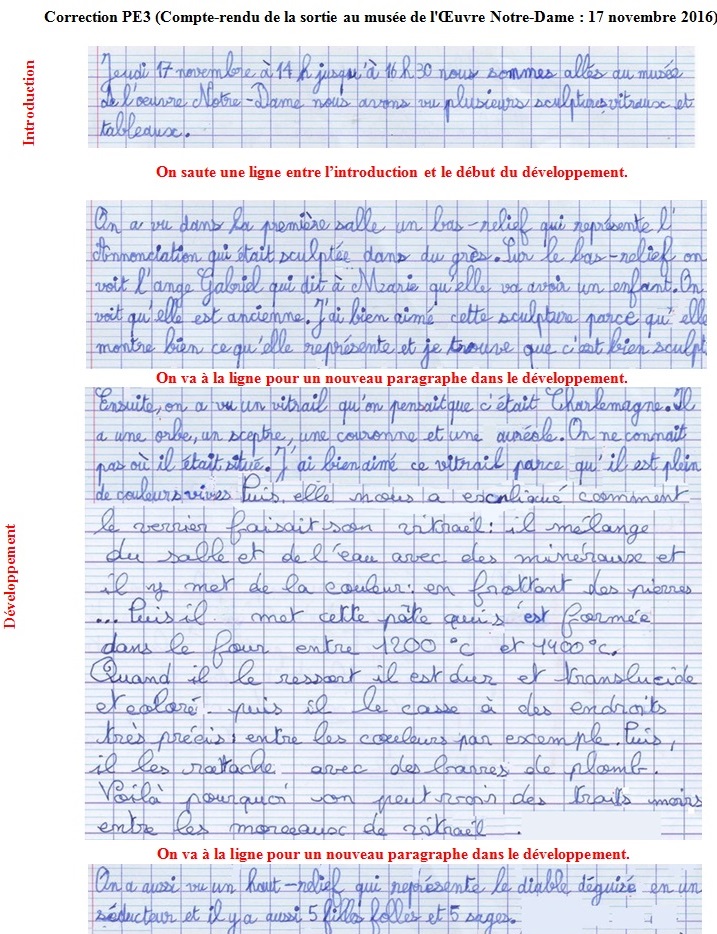 Correction PE3 (Compte-rendu de la sortie au musée de l'Œuvre Notre-Dame : 17 novembre 2016)
Introduction
Jeudi 17 novembre à 14 h jusqu'à 16 h 30 nous sommes allés au musée
de l'oeuvre Notre-Dame nous avons vu plusieurs sculptures vitraux et
tableaux.
On saute une ligne entre l'introduction et le début du développement.
On a vu dans la première salle un bas-relief qui représente l'
Annonciation qui était sculptée dans du grès. Sur le bas-relief on
voit l'ange Gabriel qui dit à Marie qu'elle va avoir un enfant. On
voit qu'elle est ancienne. J'ai bien aimé cette sculpture parce qu'elle
montre bien ce qu'elle représente et je trouve que c'est bien sculpt
On va à la ligne pour un nouveau paragraphe dans le développement.
Développement
Ensuite, on a vu un vitrail qu'on pensait que c'était Charlemagne. Il
a une orbe, un sceptre, une couronne et une auréole. On ne connaît
pas où il était situé. J'ai bien aimé ce vitrail parce qu'il est plein
de couleurs vives Puis, elle nous a expliqué comment
le verrier faisait son vitrail : il mélange
du sable et de l'eau avec des minéraux et
il y met de la couleur : en frottant des pierres
... Puis il met cette pâte qui s'est formée
dans le four entre 1200 °C et 1400 °C.
Quand il le ressort il est dur et translucide
et coloré puis il le casse à des endroits
très précis : entre les couleurs par exemple. Puis,
il les rattache avec des barres de plomb.
Voilà pourquoi on peut voir des traits noirs
entre les morceaux de vitrail .
On va à la ligne pour un nouveau paragraphe dans le développement.
On a aussi vu un haut-relief qui représente le diable déguisé en un
séducteur et il y a aussi 5 filles folles et 5 sages.